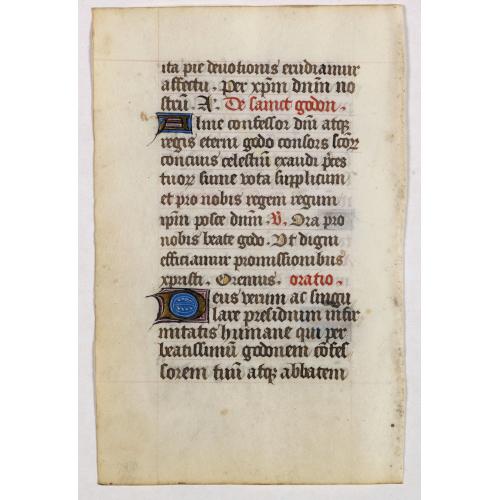 ita pie deuotionis erudiamur
affectu. Per xp̄m dn̄m no
strū. A. De sainct godon.
Alme confessor dn̄i atqꝫ
regis eterni godo consors scōꝝ
conciuis celestiū exaudi p̄ces
tuoꝝ sume vota supplicum
et pro nobis regem regum
ip̄m posce dn̄m. ℣. Ora pro
nobis beate godo. Vt digni
efficiamur promissionibus
xpristi. Oremus. oratio.
Deus verum ac singu
lare presidium infir
mitatis humane qui per
beatissimū godonem cōfes
sorem tuū atqꝫ abbatem